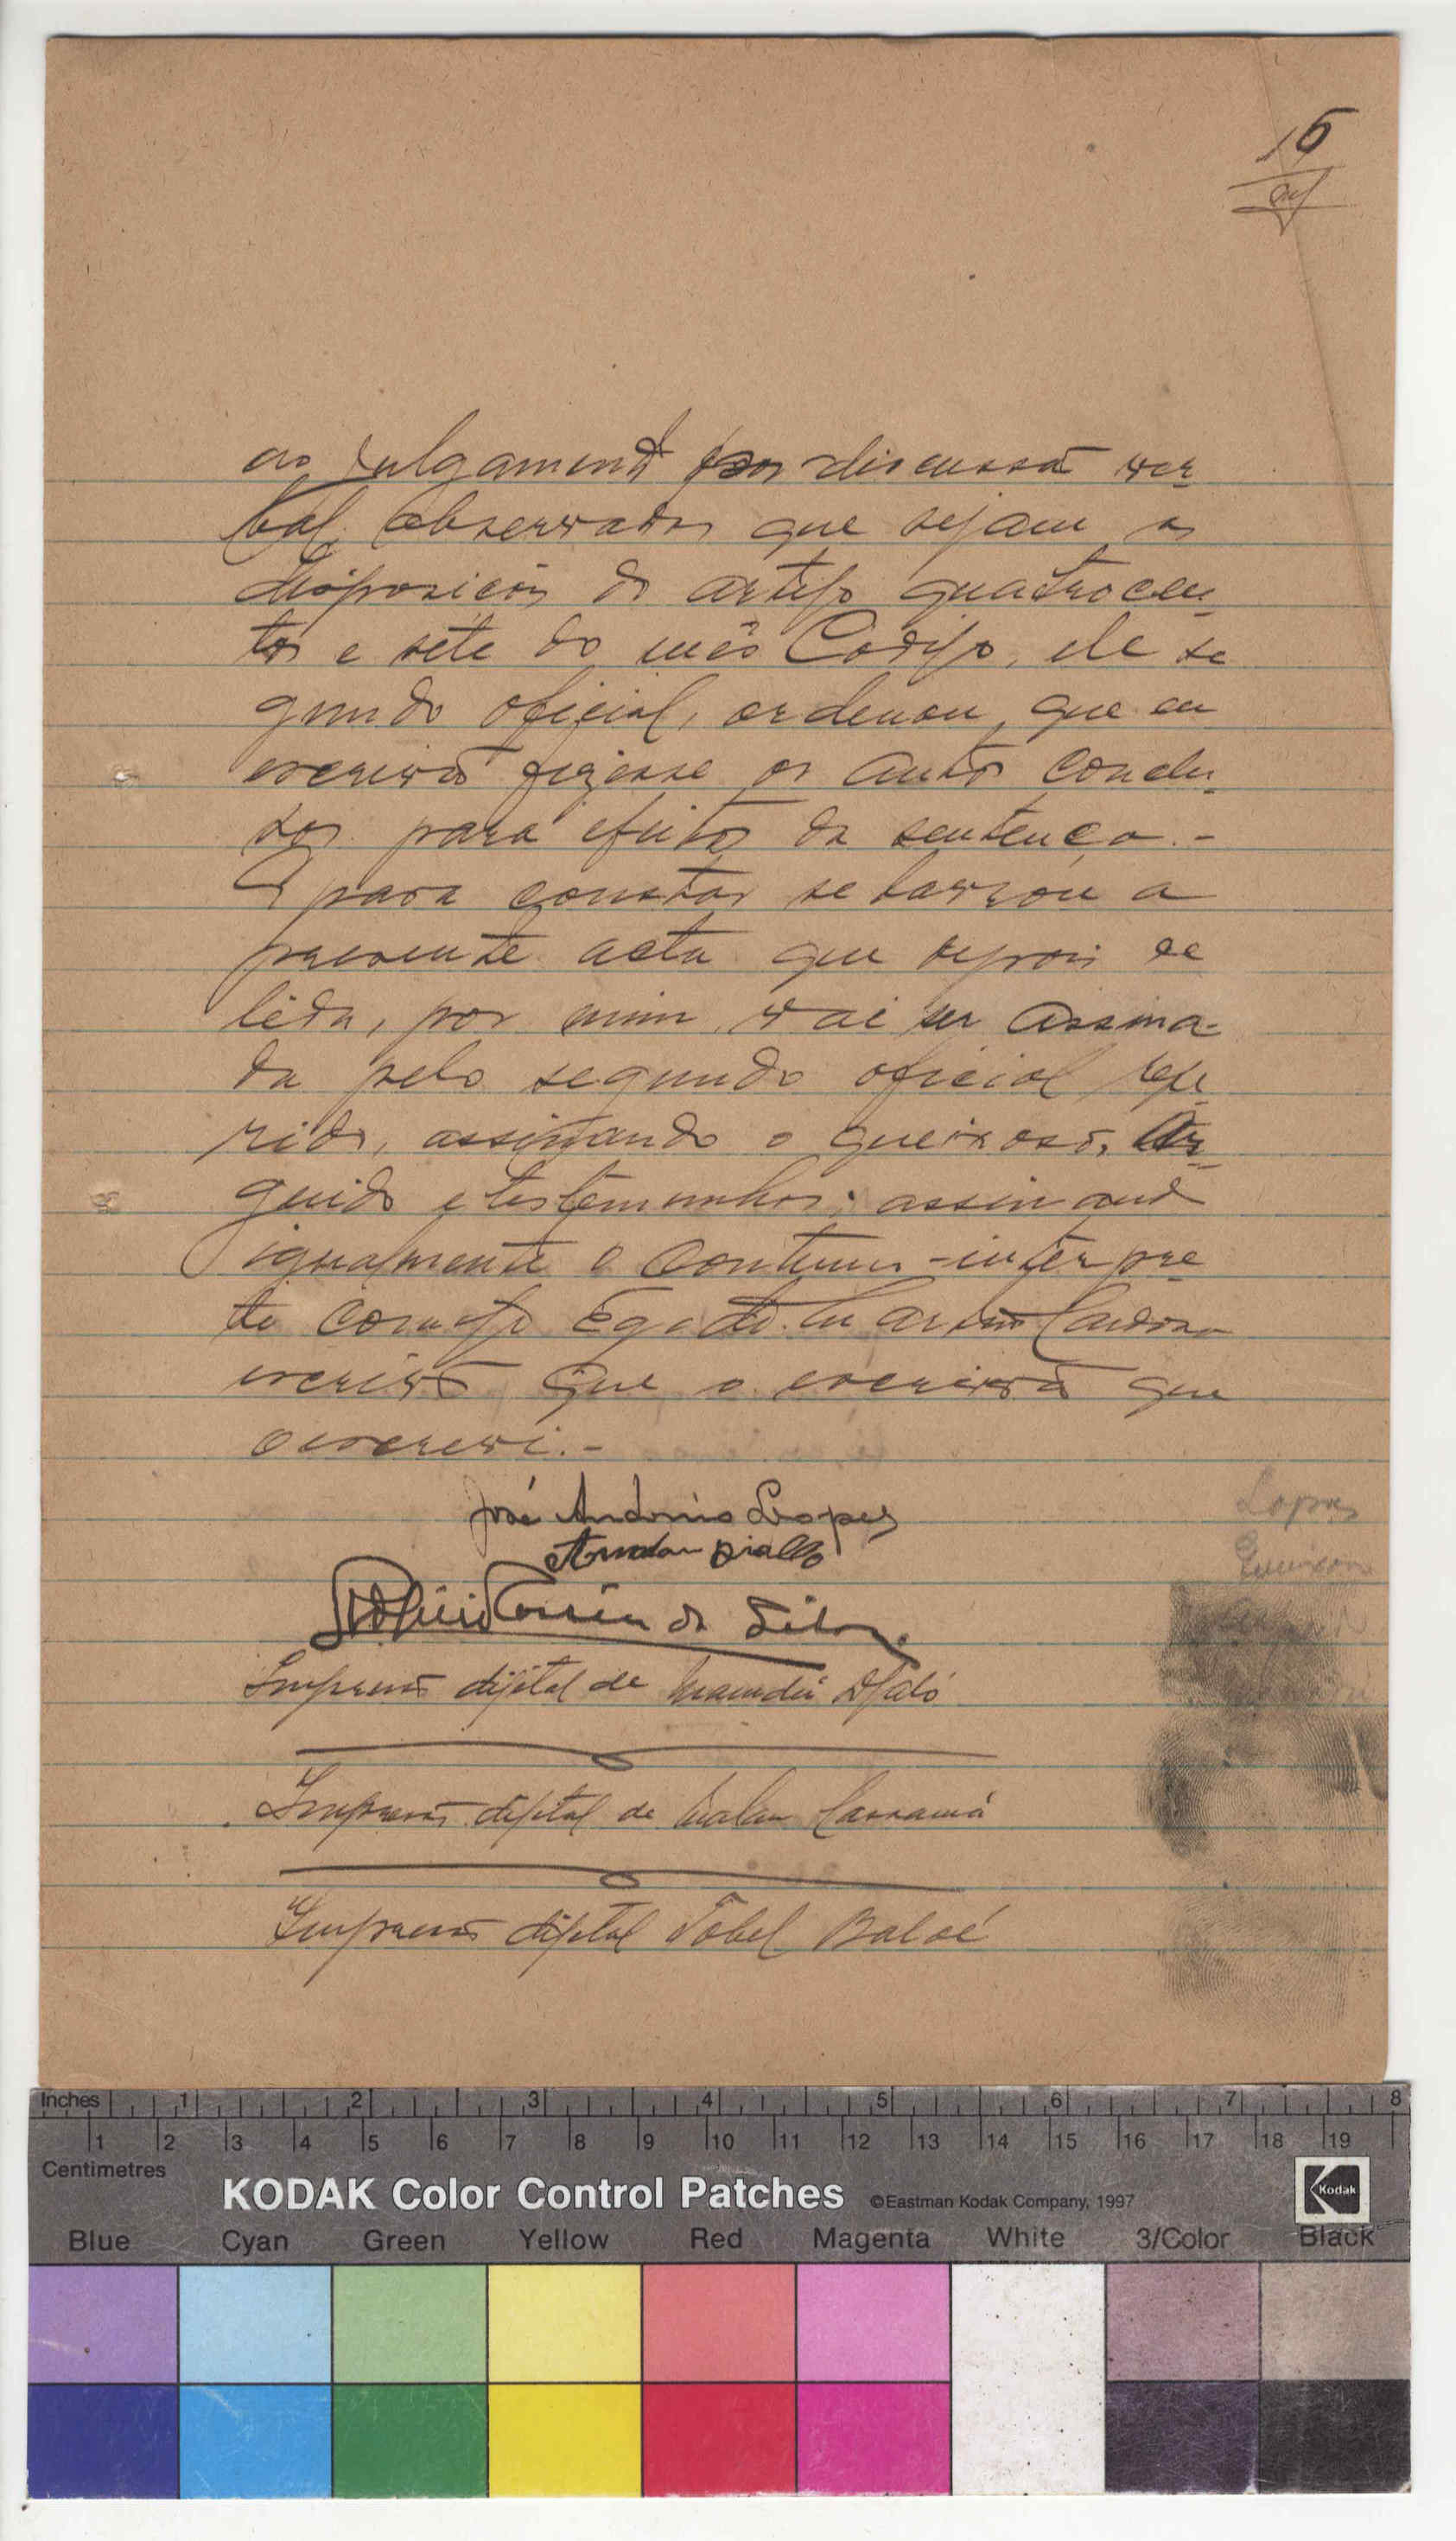 15
ao Julgamento por discussão ver-
bal, observadas que sejam as
disposições do artigo quatrocen-
tos e sete do mês Codigo, ele se
gundo oficial, ordenou, que eu
escrivão fizesse os autos conclu-
sos para efeitos da sentença.-
E para constar se lavrou a
presente acta que depois de
lida, por mim, vai ser assina-
da pelo segundo oficial refe-
rido, assinando o queixoso, Ar-
guido e testemunhas; assinando
igualmente o interpre
te Egidio Cardoso
escrivão que o escrivão que
o escrevi.-
José António Lopes
Amadou Diallo
da Silva.
Impressão dijital de Mamadú Djaló
Impressão dijital de Malan Cassamá
Impressão dijital Tobel Baldé
Lopes
Inches 1 2 3 4 5 6 7 8
1 2 3 4 5 6 7 8 9 10 11 12 13 14 15 16 17 18 19
Centimetres
KODAK Color Control Patches ©Eastman Kodak Company, 1997 Kodak
Blue Cyan Green Yellow Red Magenta White 3/Color Black